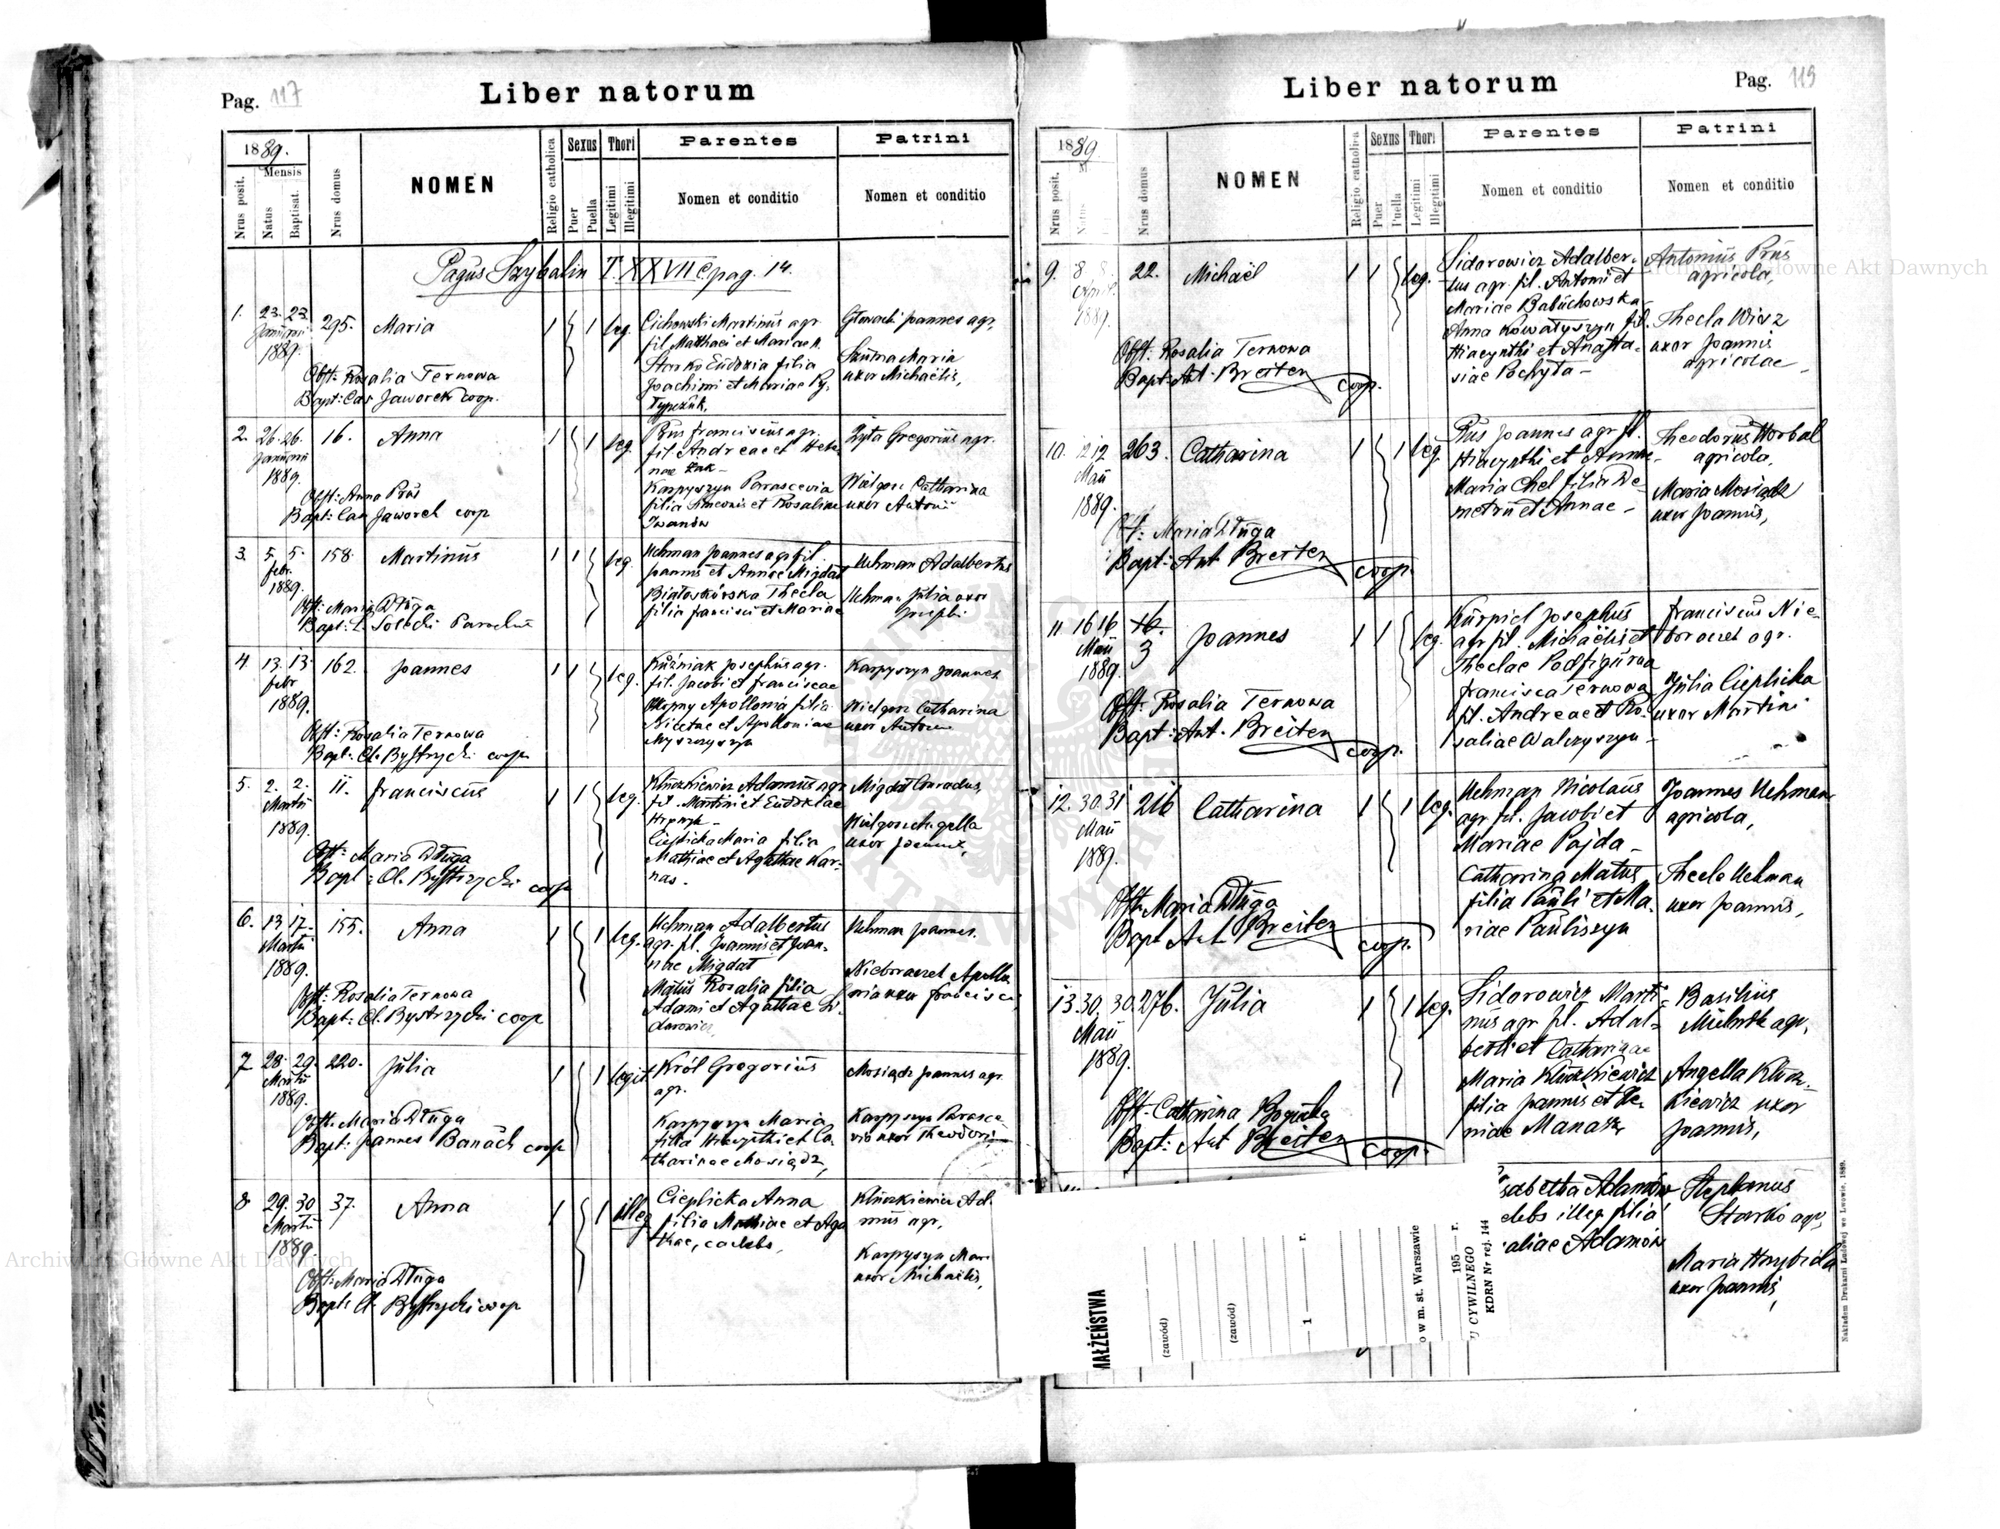 Pag. 117
Liber natorum
1889.
Mensis
Nrus posit.
Natus
Baptisat.
Nrus domus
NOMEN
Religio catholica
Sexus
Puer
Puella
Thori
Legitimi
Illegitimi
Parentes
Nomen et conditio
Patrini
Nomen et conditio
Pagus Szybalin T. XXVII pag. 14.
1. 23. 23. 295. Maria 1 1 leg.
Januarii
1889.
Obst: Rosalia Ternowa
Bapt: Cas Jaworek coop.
Cichowski Martinus agr.
fil. Matthaei et Mariae
Starko Eudoxia filia
Joachimi et Mariae
Głowacki Joannes agr.
Maria
uxor Michaëlis,
2. 26. 26. 16. Anna 1 1 leg.
Januarii
1889.
Obst: Anna Prus
Bapt: Cas Jaworek coop
Prus Franciscus agr.
fil. Andreae et Hele
nae Żak
Karpyszyn Parascevia
filia Simeonis et Rosaliae
Iwanów
Zyta Gregorius agr.
Wielgosz Catharina
uxor Antonii
3. 5. 5. 158. Martinus 1 1 leg.
febr.
1889.
Obst: Maria Długa
Bapt: Solecki Parochus
Uchman Joannes agr. fil.
Joannis et Annae Migdał
Białoskórska Thecla
filia Francisci et Mariae
Uchman Adalbertus
Uchman Julia uxor
Josephi
4. 13. 13. 162. Joannes 1 1 leg.
febr
1889.
Obst: Rosalia Ternowa
Bapt: Cl. Bystrzycki coop
Kuźniak Josephus agr.
fil. Jacobi et Franciscae
Apollonia filia
Nicetae et Apolloniae
Myszczyszyn
Karpyszyn Joannes
Wielgosz Catharina
uxor Antonii
5. 2. 2. 11. Franciscus 1 1 leg.
Martii
1889.
Obst: Maria Długa
Bapt: Cl. Bystrzycki coop
Kluszkiewicz Adamus agr
fil. Martini et Eudoxiae
Cieplicka Maria filia
Mathiae et Agathae Kar-
nas.
Migdał Conradus
uxor Joannis,
6. 13. 17. 155. Anna 1 1 leg.
Martii
1889.
Obst: Rosalia Ternowa
Bapt: Cl. Bystrzycki coop
Uchman Adalbertus
agr. fil. Joannis et Joan-
nae Migdał
Matus Rosalia filia
Adami et Agathae Si-
dorowicz
Uchman Joannes.
Nieborawet Apollo
nia uxor Francisci
7 28. 29. 220. Julia 1 1 legit.
Martii
1889.
Obst: Maria Długa
Bapt: Joannes Banach coop
Król Gregorius
agr.
Karpyszyn Maria
filia Hiacynthi et Ca
tharinae Mosiądz,
Mosiądz Joannes agr.
Karpyszyn Parasce
via uxor Theodori
8 29. 30 37. Anna 1 1 illeg
Martii
1889.
Obst: Maria Długa
Bapt: Cl. Bystrzycki coop
Cieplicka Anna
filia Mathiae et Aga
thae, caelebs,
Kluszkiewicz Ad.
mus agr,
Karpyszyn Mar.
uxor Michaëlis,
Liber natorum
Pag. 119
1889.
Nrus posit.
Nrus domus
NOMEN
Religio catholica
Sexus
Puer
Puella
Thori
Legitimi
Illegitimi
Parentes
Nomen et conditio
Patrini
Nomen et conditio
9. 8. 8. 22. Michaël 1 1 leg.
April.
1889.
Obst: Rosalia Ternowa
Bapt: Ant. Breiten coop.
Sidorowicz Adalber-
tus agr. fil. Antonii et
Mariae Babuchowska
Anna Kowałyszyn fil.
Hiacynthi et Anasta-
siae Pochyta
Antonius Prus
agricola,
Thecla Wisz
uxor Joannis
agricolae
10. 12 12 263. Catharina 1 1 leg.
Maii
1889.
Obst: Maria Długa
Bapt: Ant Breiten coop.
Prus Joannes agr. fil.
Hiacynthi et Annae
Maria Chel filia De-
metrii et Annae
Theodorus Worbal
agricola,
Maria Mosiądz
uxor Joannis,
11 16 16 16. 3 Joannes 1 1 leg.
Maii
1889.
Obst: Rosalia Ternowa
Bapt: Ant. Breiten coop.
Kurpiel Josephus
agr. fil. Michaëlis et
Theclae Podfigurna
Francisca Ternowa
fil. Andreae et Ro-
saliae Walczyszyn
Franciscus Nie-
borawet agr.
Julia Cieplicka
uxor Martini
12. 30. 31 216 Catharina 1 1 leg.
Maii
1889.
Obst: Maria Długa
Bapt Ant Breiten coop.
Uchman Nicolaus
agr. fil. Jacobi et
Mariae Pajda
Catharina Matus
filia Pauli et Ma-
riae Pauliszyn
Joannes Uchman
agricola,
Thecla Uchman
uxor Joannis,
13. 30. 30. 276. Julia 1 1 leg.
Maii
1889.
Obst: Catharina
Bapt: Ant Breiten coop.
Sidorowicz Marti-
nus agr. fil. Adal-
berti et Catharinae
Maria Kluszkiewicz
filia Joannis et Xe
niae Manasz
Basilius
agr,
Angella Klusz-
kiewicz uxor
Joannis,
sabetha Adamów
elebs illeg. filia
aliae Adamów
Stephanus
Starko agr,
Maria Hrybida
uxor Joannis,
MAŁŻEŃSTWA
(zawód)
(zawód)
1 r.
o w m. st. Warszawie
195 r.
CYWILNEGO
KDRN Nr rej. 144
Nakładem Drukarni Ludowej we Lwowie, 1889.
Archiwum Główne Akt Dawnych
Archiwum Główne Akt Dawnych